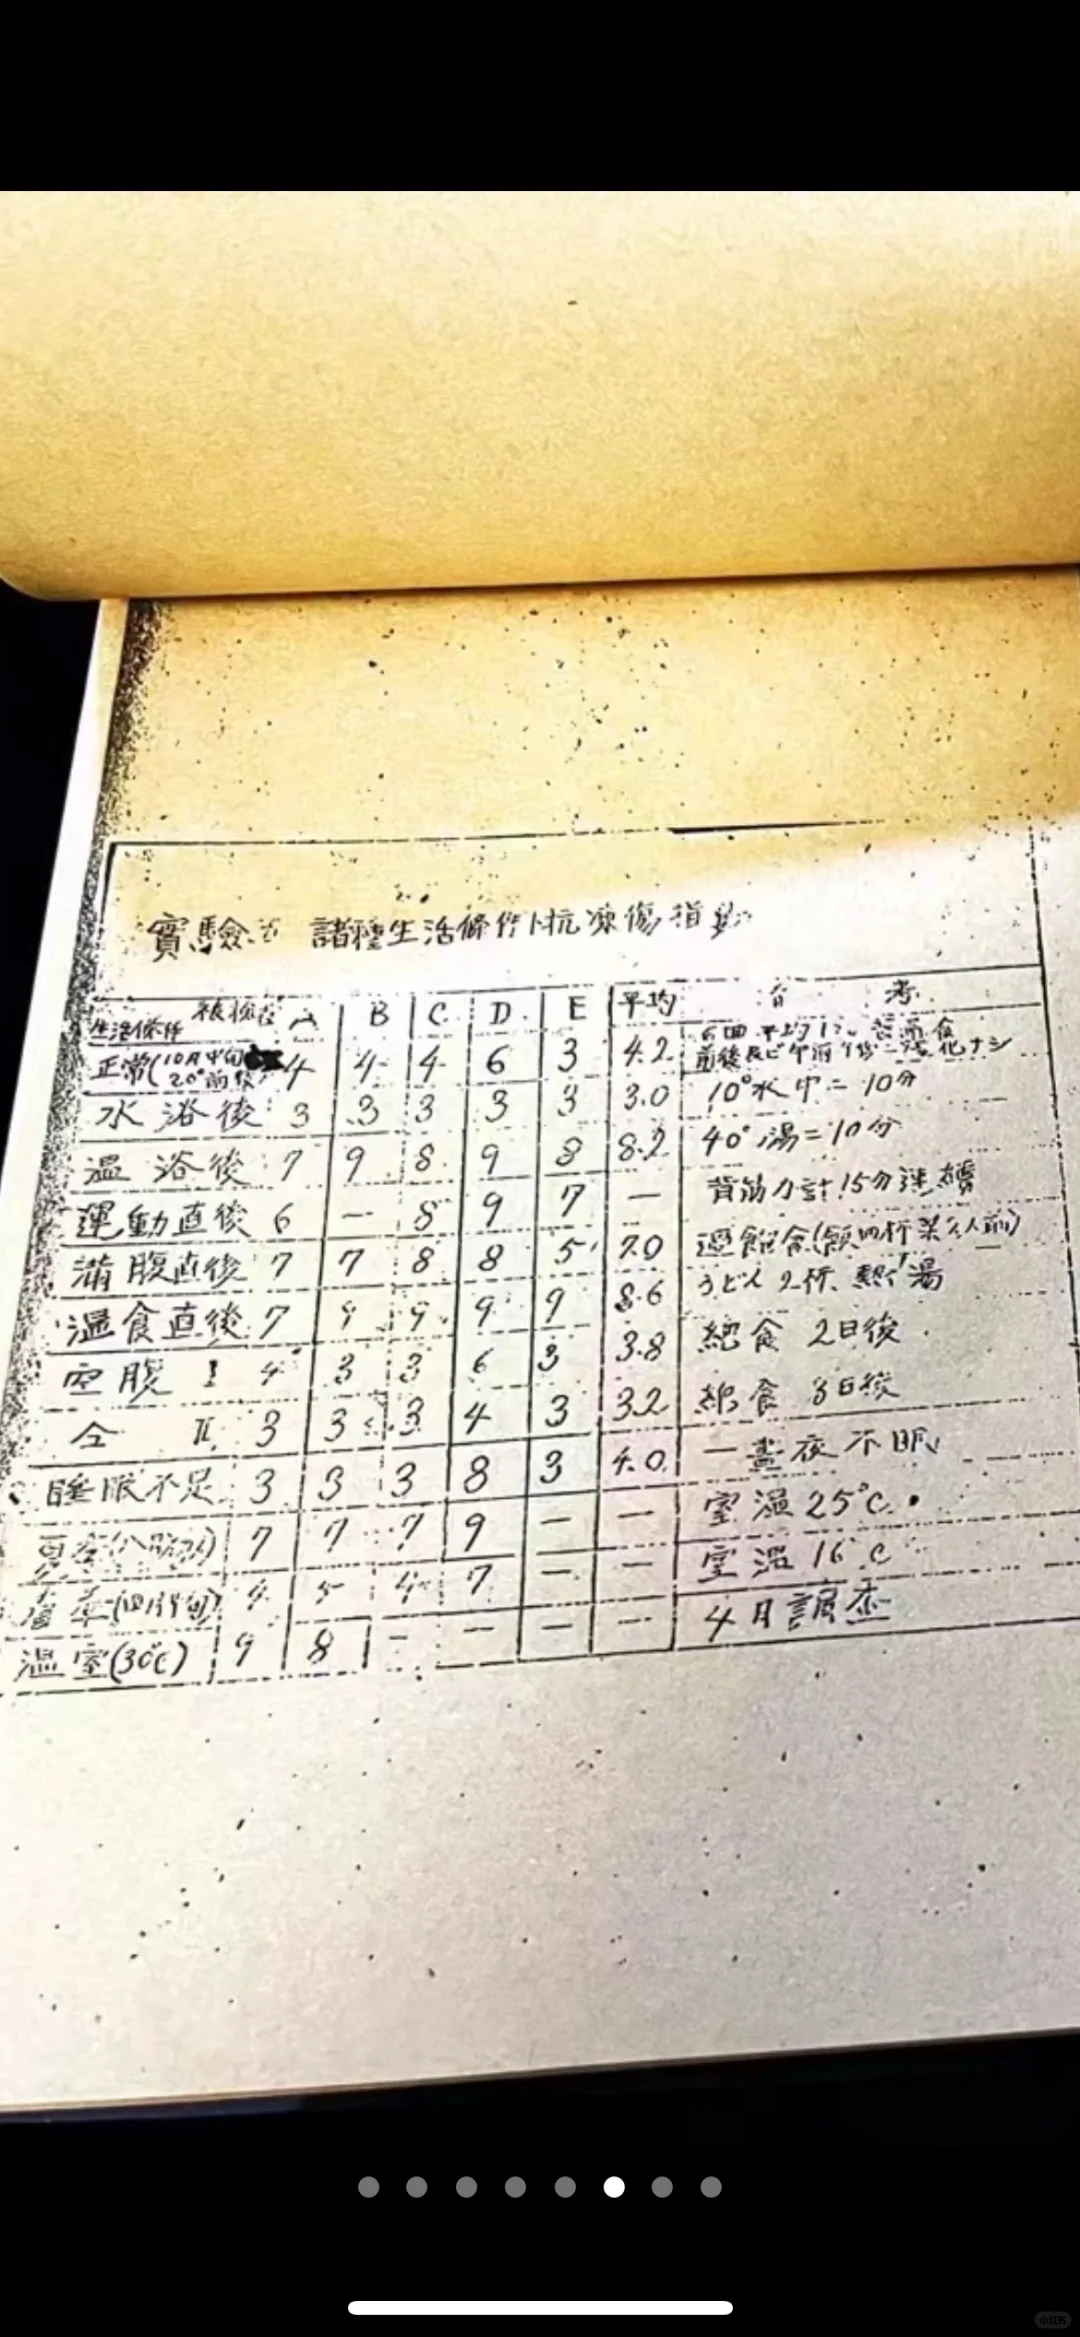 實驗 諸種生活條件ト抗凍傷指數
生活條件 被檢 A B C D E 平均 備考
正常(10月中旬 20°前後) 4 4 4 6 3 4.2 6回平均
前後及ビ 化ナシ
水浴後 3 3 3 3 3 3.0 10°水中ニ10分
温浴後 7 9 8 9 8 8.2 40°湯ニ10分
運動直後 6 — 8 9 7 — 背筋力計15分連續
滿腹直後 7 7 8 8 5 7.0 過飽食(飯四杯菜2人前)
温食直後 7 9 9 9 9 8.6 うどん2杯、熱イ湯
空腹 I 4 3 3 6 3 3.8 絕食 2日後
仝 II 3 3 3 4 3 3.2 絕食 3日後
睡眠不足 3 3 3 8 3 4.0 一晝夜不眠
7 7 7 9 — — 室温25°C.
4 5 4 7 — — 室温16°C
温室(30°C) 9 8 — — — — 4月調査
小红书